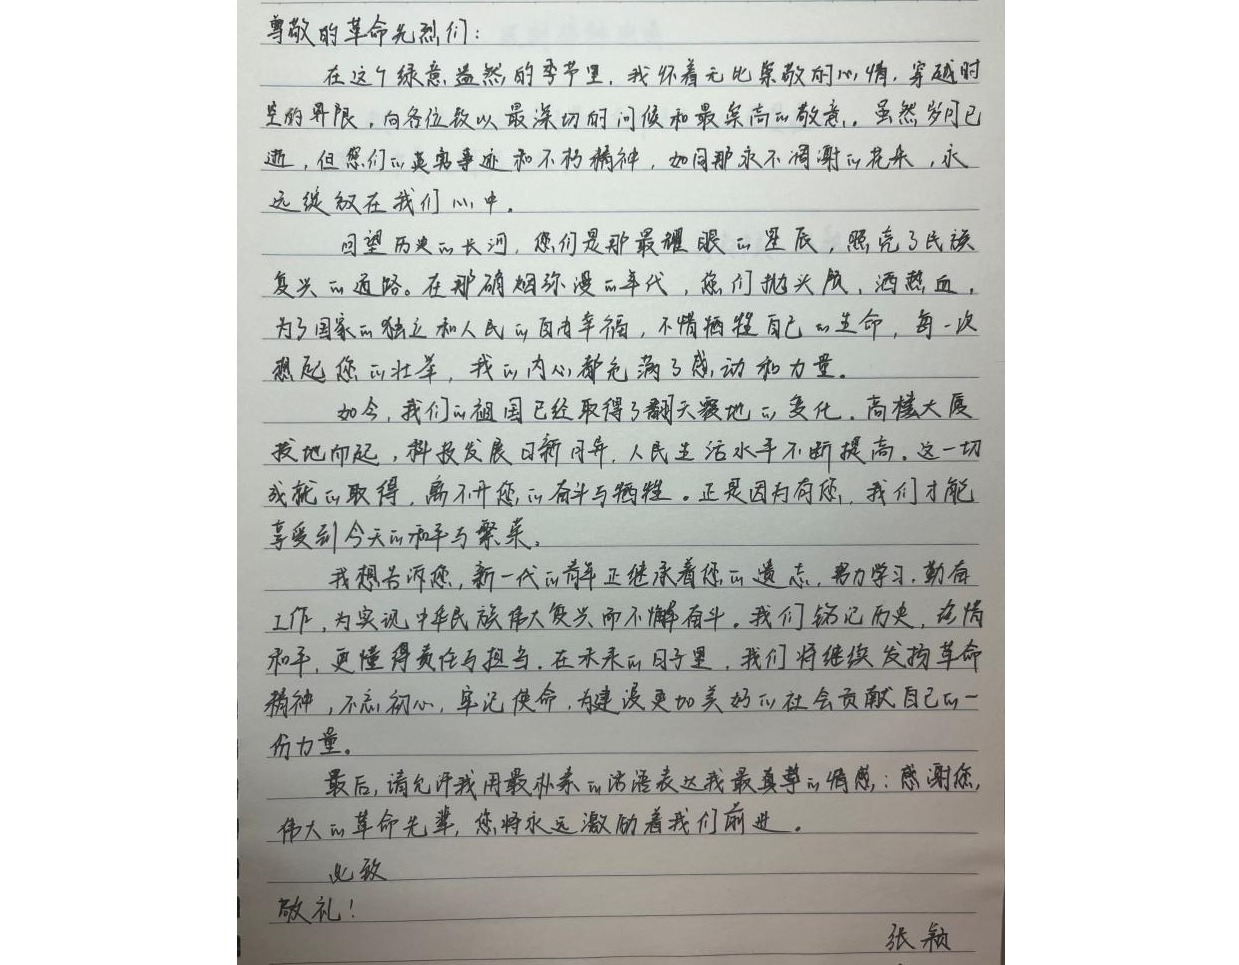 尊敬的革命先烈们：
在这个绿意盎然的季节里，我怀着无比崇敬的心情，穿越时
空的界限，向各位致以最深切的问候和最崇高的敬意。虽然岁月已
逝，但您们的英勇事迹和不朽精神，如同那永不凋谢的花朵，永
远绽放在我们心中。
回望历史的长河，您们是那最耀眼的星辰，照亮了民族
复兴的道路。在那硝烟弥漫的年代，您们抛头颅，洒热血，
为了国家的独立和人民的自由幸福，不惜牺牲自己的生命，每一次
想起您的壮举，我的内心都充满了感动和力量。
如今，我们的祖国已经取得了翻天覆地的变化，高楼大厦
拔地而起，科技发展日新月异，人民生活水平不断提高。这一切
成就的取得，离不开您的奋斗与牺牲。正是因为有您，我们才能
享受到今天的和平与繁荣。
我想告诉您，新一代的青年正继承着您的遗志，努力学习，勤奋
工作，为实现中华民族伟大复兴而不懈奋斗。我们铭记历史，珍惜
和平，更懂得责任与担当。在未来的日子里，我们将继续发扬革命
精神，不忘初心，牢记使命，为建设更加美好的社会贡献自己的一
份力量。
最后，请允许我用最朴素的话语表达我最真挚的情感：感谢您，
伟大的革命先辈，您将永远激励着我们前进。
此致
敬礼！
张颖